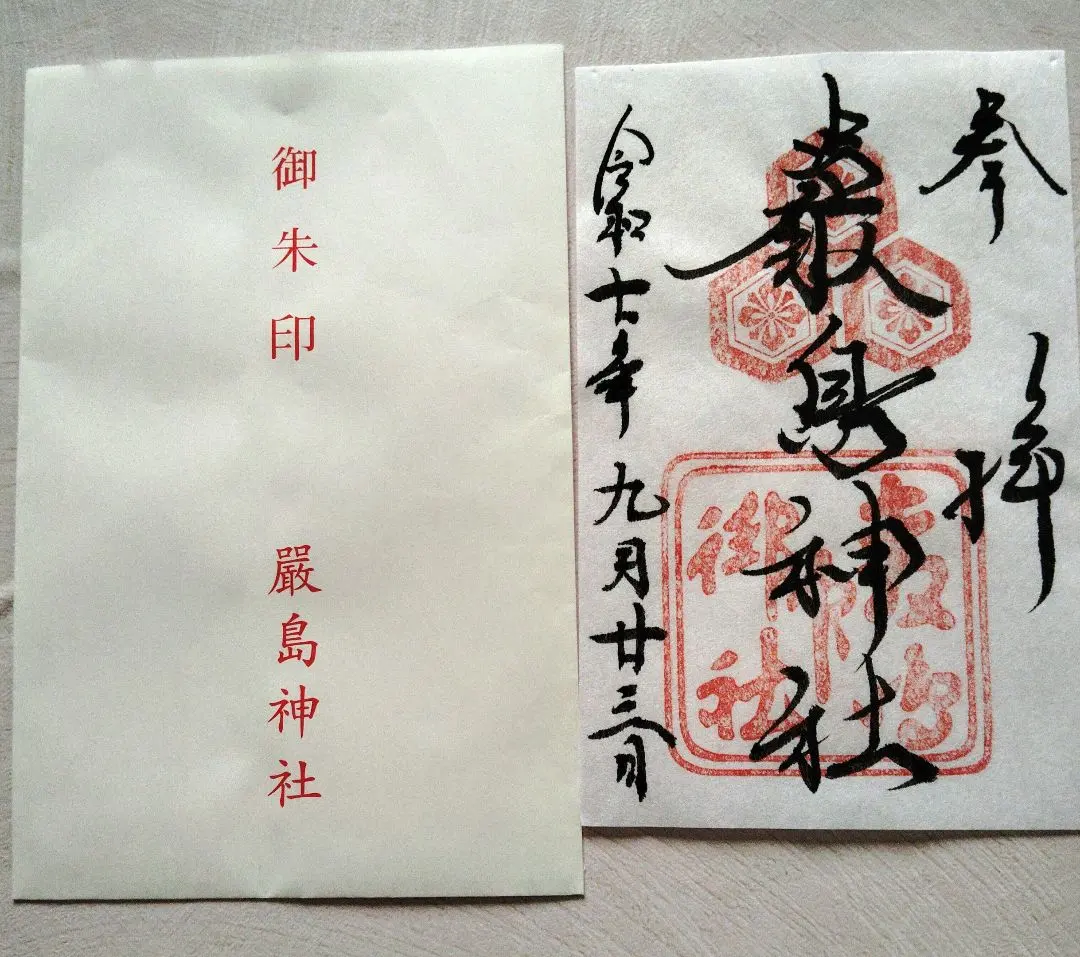 御朱印
嚴島神社
奉拝
嚴島神社
令和七年九月廿三日
嚴島
神社